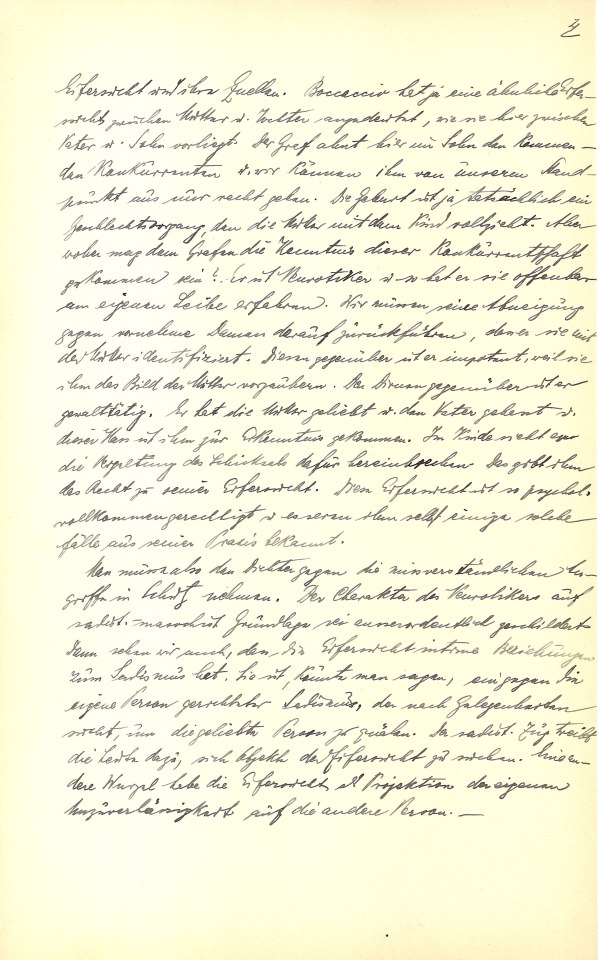 4
Eifersucht und ihre Quellen. Boccaccio hat ja eine ähnliche Eifer-
sucht zwischen Mutter u. Tochter angedeutet, wie sie hier zwischen
Vater u. Sohn vorliegt. Der Graf ahnt hier im Sohn den kommen-
den Konkurrenten u. wir können ihm von unserem Stand-
punkt aus nur recht geben. Die Geburt ist ja tatsächlich ein
Geschlechtsvorgang, den die Mutter mit dem Kind vollzieht. Aber
woher mag dem Grafen die Kenntnis dieser Konkurrentschaft
gekommen sein? Er ist Neurotiker u. so hat er sie offenbar
am eigenen Leibe erfahren. Wir müssen seine Abneigung
gegen vornehme Damen darauf zurückführen, dass er sie mit
der Mutter identifiziert. Diesen gegenüber ist er impotent, weil sie
ihm das Bild der Mutter vorzaubern. Den Dirnen gegenüber ist er
gewalttätig. Er hat die Mutter geliebt u. den Vater gehasst u.
dieser Hass ist ihm zur Erkenntnis gekommen. Im Kinde sieht er
die Vergeltung des Schicksals dafür hereinbrechen. Das gibt ihm
das Recht zu seiner Eifersucht. Diese Eifersucht ist so psychol.
vollkommen gerechtigt u. es seien ihm selbst einige solche
Fälle aus seiner Praxis bekannt.
Man müsse also den Dichter gegen die missverständlichen An-
griffe in Schutz nehmen. Der Charakter des Neurotikers auf
sadist.-masochist. Grundlage sei ausserordentlich geschildert.
Dann sehen wir auch, dass die Eifersucht intime Beziehungen
zum Sadismus hat. Sie ist, könnte man sagen, ein gegen die
eigene Person gerichteter Sadismus, der nach Gelegenheiten
sucht, um die geliebte Person zu quälen. Der sadist. Zug treibt
die Leute dazu, sich Objekte der Eifersucht zu suchen. Eine an-
dere Wurzel habe die Eifersucht als Projektion der eigenen
Unzuverlässigkeit auf die andere Person. —